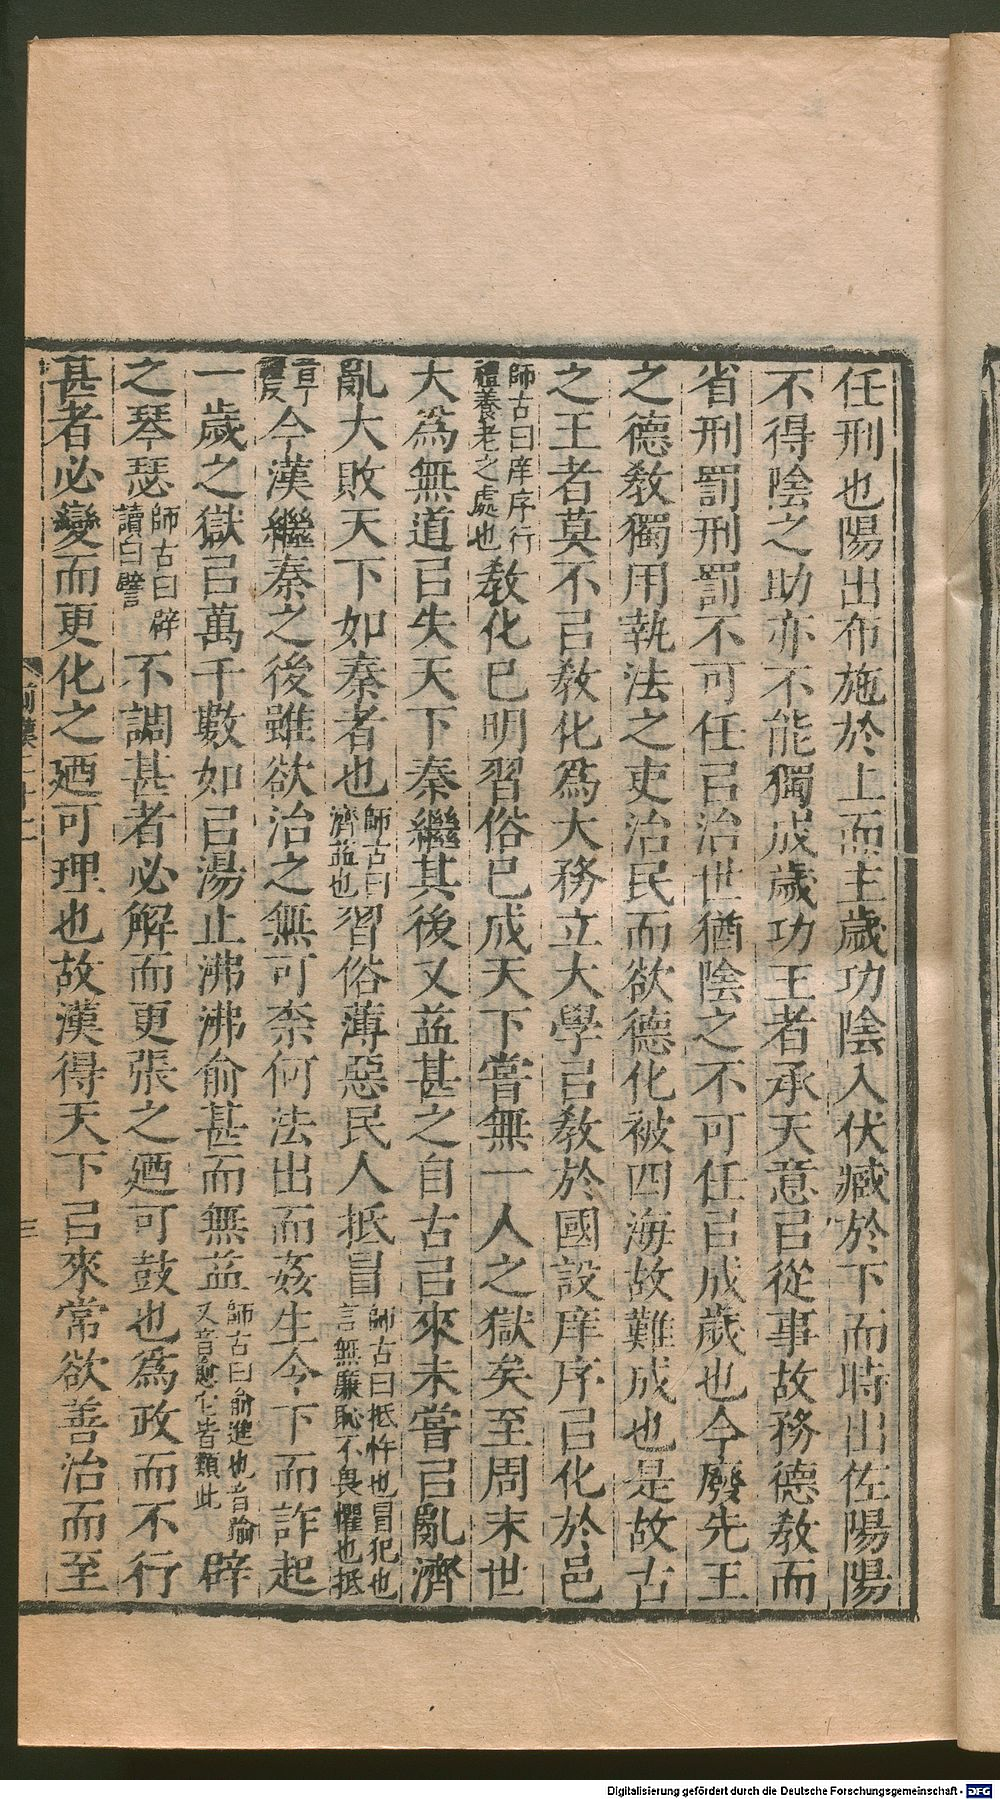 任刑也陽出布施於上而主歲功陰入伏臧於下而時出佐陽陽
不得陰之助亦不能獨成歲功王者承天意㠯從事故務德敎而
省刑罰刑罰不可任㠯治世猶陰之不可任㠯成歲也今廢先王
之德敎獨用執法之吏治民而欲德化被四海故難成也是故古
之王者莫不㠯敎化爲大務立大學㠯敎於國設庠序㠯化於邑
師古曰庠序行禮養老之處也敎化已明習俗已成天下嘗無一人之獄矣至周末世
大爲無道㠯失天下秦繼其後又益甚之自古㠯來未嘗㠯亂濟
亂大敗天下如秦者也師古曰濟益也習俗薄惡民人抵冒師古曰抵忤也冒犯也言無廉恥不畏懼也抵
音丁禮反今漢繼秦之後雖欲治之無可柰何法出而姦生令下而詐起
一歲之獄㠯萬千數如㠯湯止沸沸俞甚而無益師古曰俞進也音踰又音愈它皆類此辟
之琴瑟師古曰辟讀曰譬不調甚者必解而更張之廼可鼓也爲政而不行
甚者必變而更化之廼可理也故漢得天下㠯來常欲善治而至
前漢二十二
三
Digitalisierung gefördert durch die Deutsche Forschungsgemeinschaft - DFG